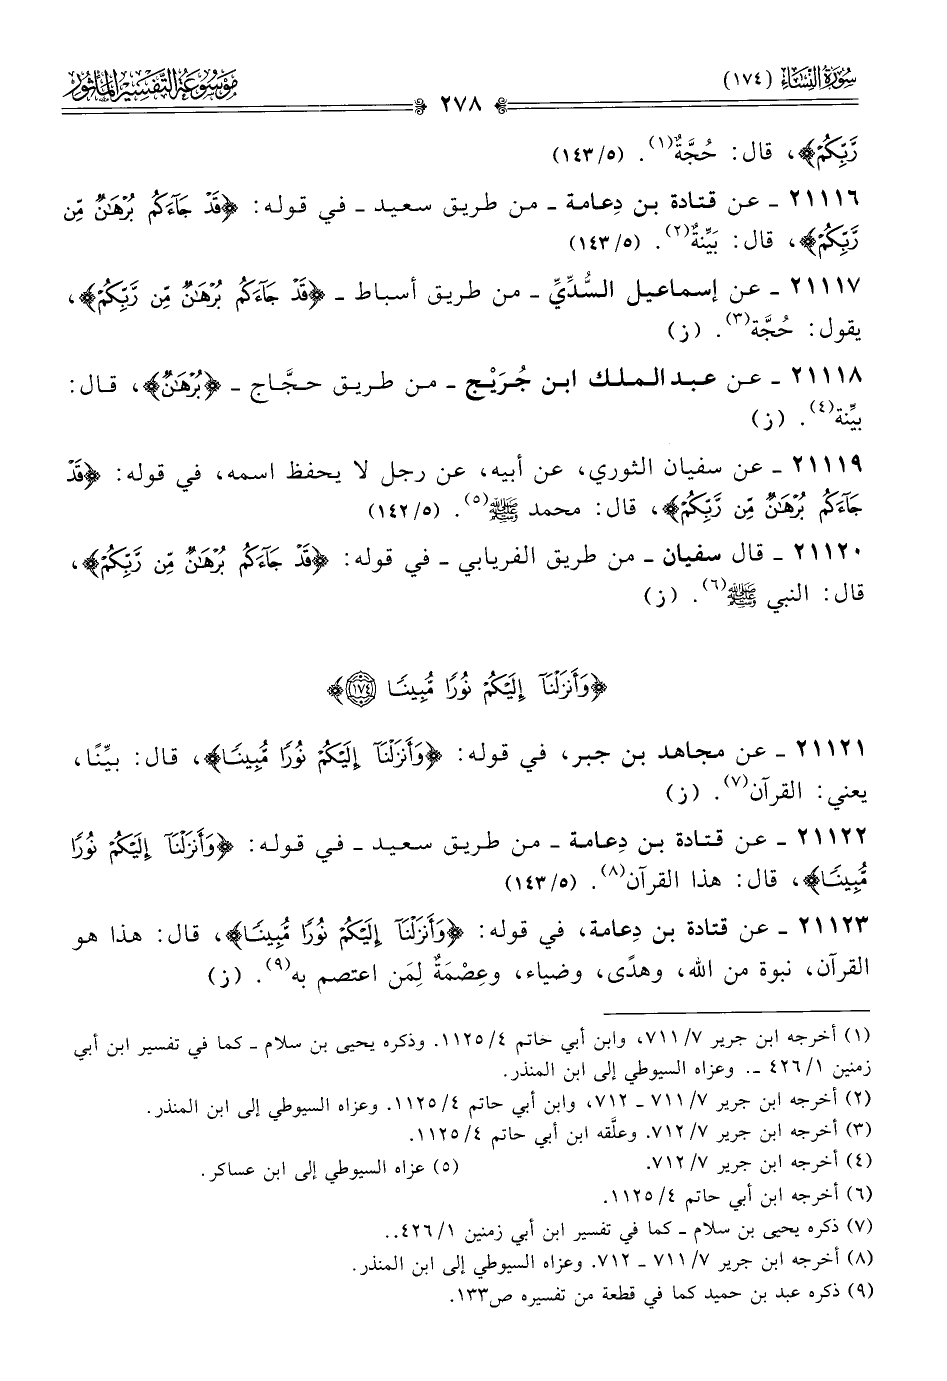 سُورَةُ النِّسَاءِ (١٧٤)
٢٧٨
مَوْسُوعَةُ التَّفْسِيرِ المَأْثُورِ
رَّبِّكُمْ﴾، قال: حُجَّةٌ(١). (١٤٣/٥)
٢١١١٦ ـ عن قتادة بن دِعامة ـ من طريق سعيد ـ في قوله: ﴿قَدْ جَآءَكُم بُرْهَـٰنٌ مِّن
رَّبِّكُمْ﴾، قال: بَيِّنةٌ(٢). (١٤٣/٥)
٢١١١٧ ـ عن إسماعيل السُّدِّيِّ ـ من طريق أسباط ـ ﴿قَدْ جَآءَكُم بُرْهَـٰنٌ مِّن رَّبِّكُمْ﴾،
يقول: حُجَّة(٣). (ز)
٢١١١٨ ـ عن عبد الملك ابن جُرَيْج ـ من طريق حجَّاج ـ ﴿بُرْهَـٰنٌ﴾، قال:
بيِّنة(٤). (ز)
٢١١١٩ ـ عن سفيان الثوري، عن أبيه، عن رجل لا يحفظ اسمه، في قوله: ﴿قَدْ
جَآءَكُم بُرْهَـٰنٌ مِّن رَّبِّكُمْ﴾، قال: محمد ﷺ(٥). (١٤٢/٥)
٢١١٢٠ ـ قال سفيان ـ من طريق الفريابي ـ في قوله: ﴿قَدْ جَآءَكُم بُرْهَـٰنٌ مِّن رَّبِّكُمْ﴾،
قال: النبي ﷺ(٦). (ز)
﴿وَأَنزَلْنَآ إِلَيْكُمْ نُورًا مُّبِينًا ١٧٤﴾
٢١١٢١ ـ عن مجاهد بن جبر، في قوله: ﴿وَأَنزَلْنَآ إِلَيْكُمْ نُورًا مُّبِينًا﴾، قال: بيِّنًا،
يعني: القرآن(٧). (ز)
٢١١٢٢ ـ عن قتادة بن دِعامة ـ من طريق سعيد ـ في قوله: ﴿وَأَنزَلْنَآ إِلَيْكُمْ نُورًا
مُّبِينًا﴾، قال: هذا القرآن(٨). (١٤٣/٥)
٢١١٢٣ ـ عن قتادة بن دِعامة، في قوله: ﴿وَأَنزَلْنَآ إِلَيْكُمْ نُورًا مُّبِينًا﴾، قال: هذا هو
القرآن، نبوة من الله، وهدًى، وضياء، وعِصْمَةٌ لِمَن اعتصم به(٩). (ز)
(١) أخرجه ابن جرير ٧١١/٧، وابن أبي حاتم ١١٢٥/٤. وذكره يحيى بن سلام ـ كما في تفسير ابن أبي
زمنين ٤٢٦/١ ـ. وعزاه السيوطي إلى ابن المنذر.
(٢) أخرجه ابن جرير ٧١١/٧ ـ ٧١٢، وابن أبي حاتم ١١٢٥/٤. وعزاه السيوطي إلى ابن المنذر.
(٣) أخرجه ابن جرير ٧١٢/٧. وعلَّقه ابن أبي حاتم ١١٢٥/٤.
(٤) أخرجه ابن جرير ٧١٢/٧. (٥) عزاه السيوطي إلى ابن عساكر.
(٦) أخرجه ابن أبي حاتم ١١٢٥/٤.
(٧) ذكره يحيى بن سلام ـ كما في تفسير ابن أبي زمنين ٤٢٦/١..
(٨) أخرجه ابن جرير ٧١١/٧ ـ ٧١٢. وعزاه السيوطي إلى ابن المنذر.
(٩) ذكره عبد بن حميد كما في قطعة من تفسيره ص١٣٣.